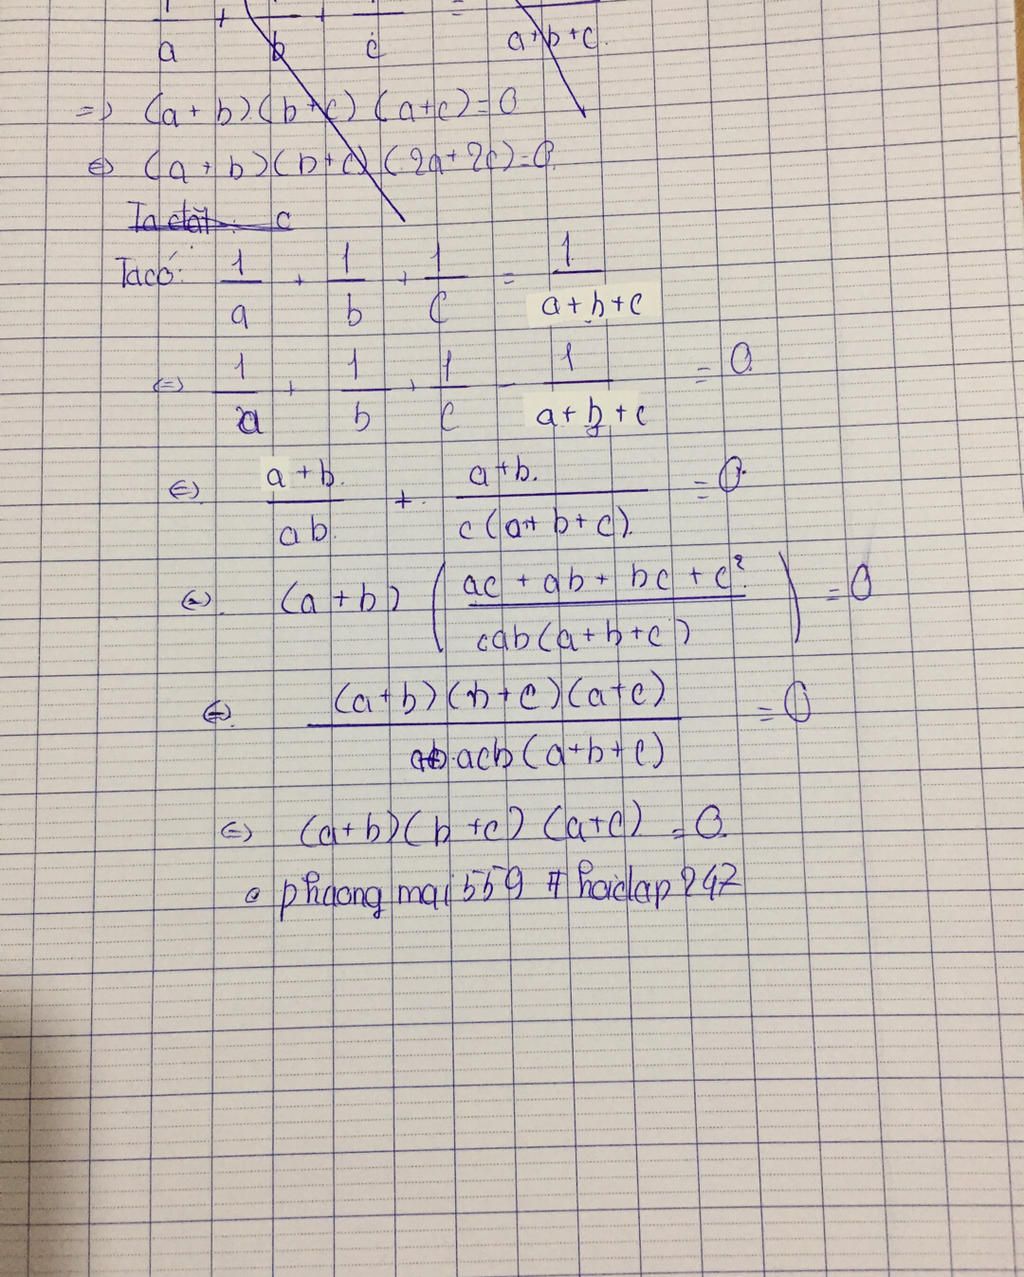 1/a + 1/b + 1/c = 1/(a+b+c).
=> (a+b)(b+c)(a+c)=0
<=> (a+b)(b+c)(2a+2c)=0.
Ta đặt: c
Ta có: 1/a + 1/b + 1/c = 1/(a+b+c)
<=> 1/a + 1/b + 1/c - 1/(a+b+c) = 0
<=> (a+b.)/(ab.) + (a+b.)/(c(a+b+c).) = 0.
<=>. (a+b) ((ac + ab + bc + c²)/(cab(a+b+c))) = 0
<=>. ((a+b)(b+c)(a+c))/(ab.acb(a+b+c)) = 0
<=> (a+b)(b+c)(a+c) = 0.
phuong mai 559 # hoidap 247